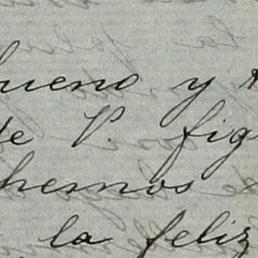 bueno, y
de V. fig
hemos
la feliz